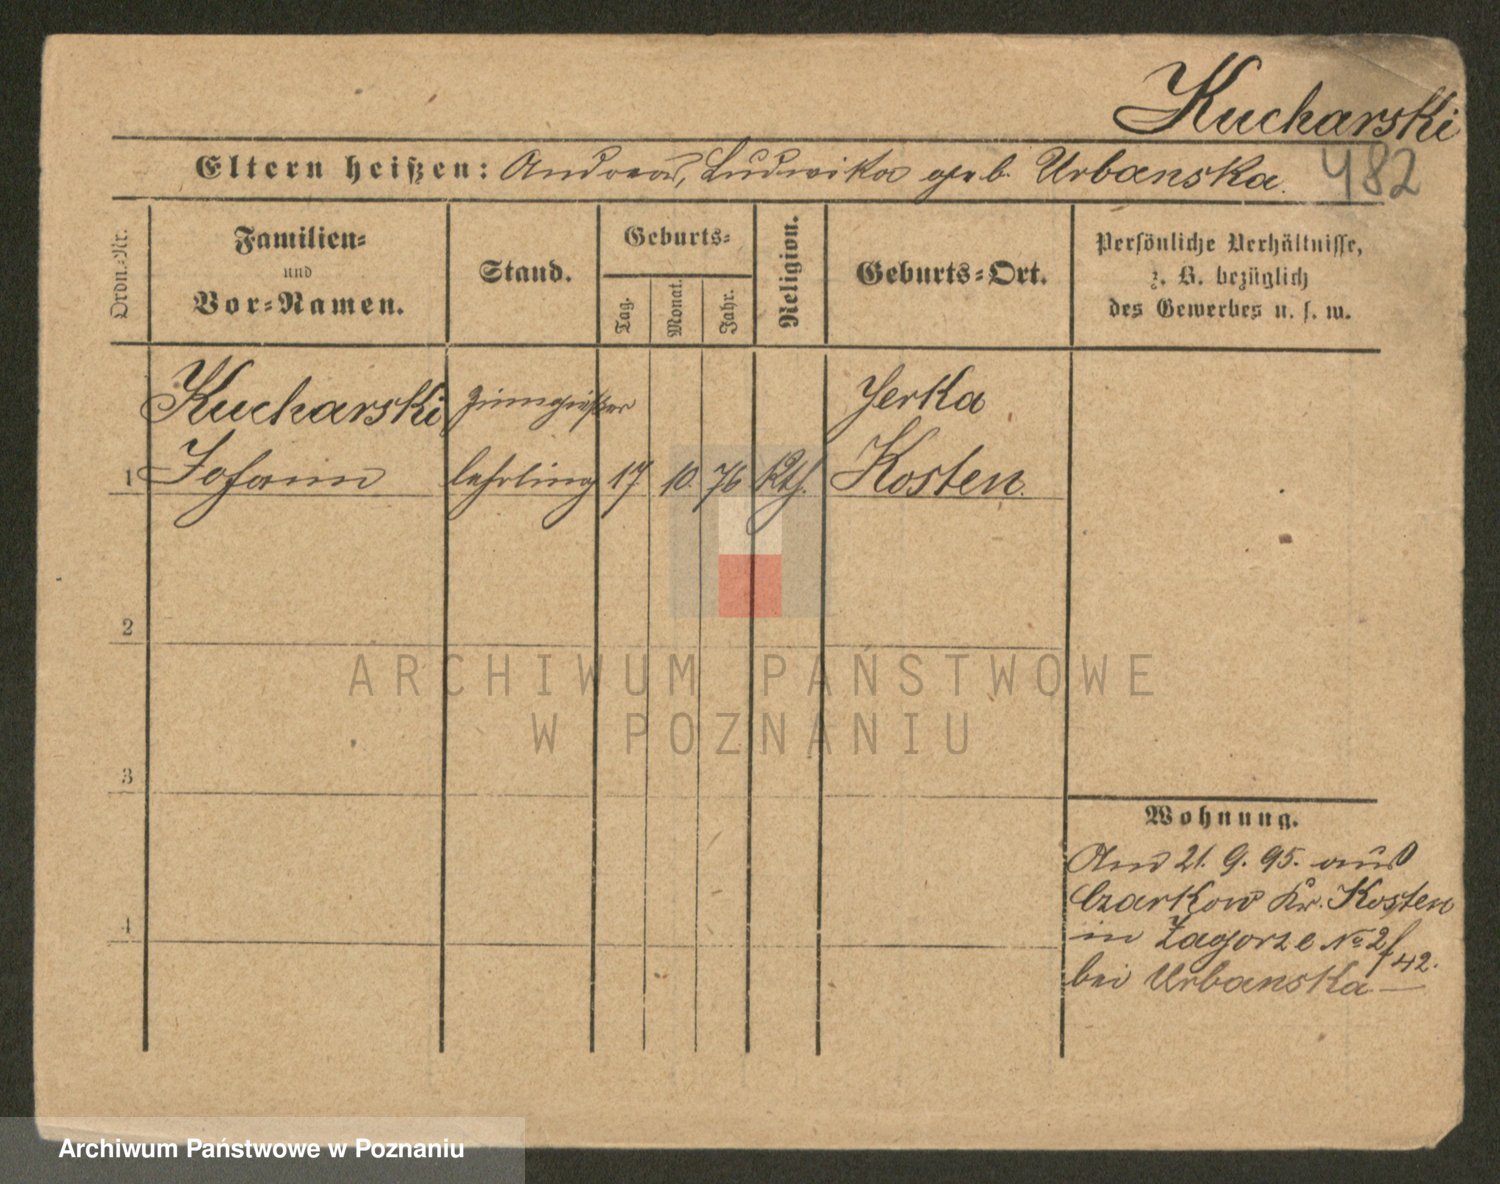 Kucharski
Eltern heißen: Andreas, Ludwika geb. Urbanska.
482
Ordn.-Nr.
Familien-
und
Vor-Namen.
Stand.
Geburts-
Tag.
Monat.
Jahr.
Religion.
Geburts-Ort.
Persönliche Verhältnisse,
z. B. bezüglich
des Gewerbes u. s. w.
Kucharski Zinngießer Jerka
1 Johann lehrling 17 10. 76 Kth. Kosten.
2
ARCHIWUM PAŃSTWOWE
W POZNANIU
3
Wohnung.
Am 21. 9. 95. aus
Czarkow Kr. Kosten
in Zagorze No 2/42.
bei Urbanska
4
Archiwum Państwowe w Poznaniu